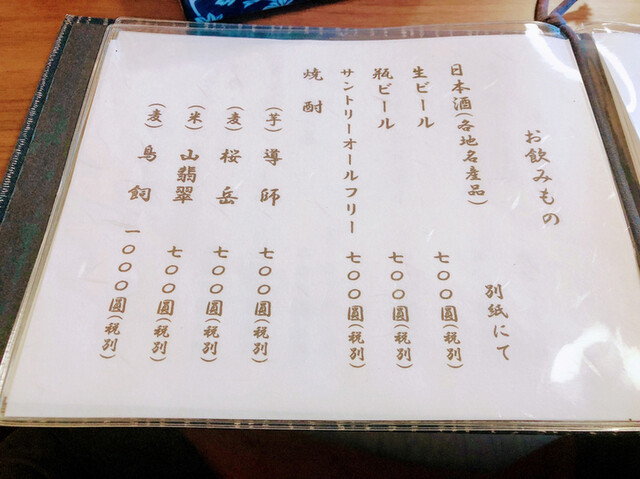 お飲みもの
日本酒(各地名産品) 別紙にて
生ビール 七〇〇圓(税別)
瓶ビール 七〇〇圓(税別)
サントリーオールフリー 七〇〇圓(税別)
焼酎
(芋) 導師 七〇〇圓(税別)
(麦) 桜岳 七〇〇圓(税別)
(米) 山翡翠 七〇〇圓(税別)
(麦) 鳥飼 一〇〇〇圓(税別)